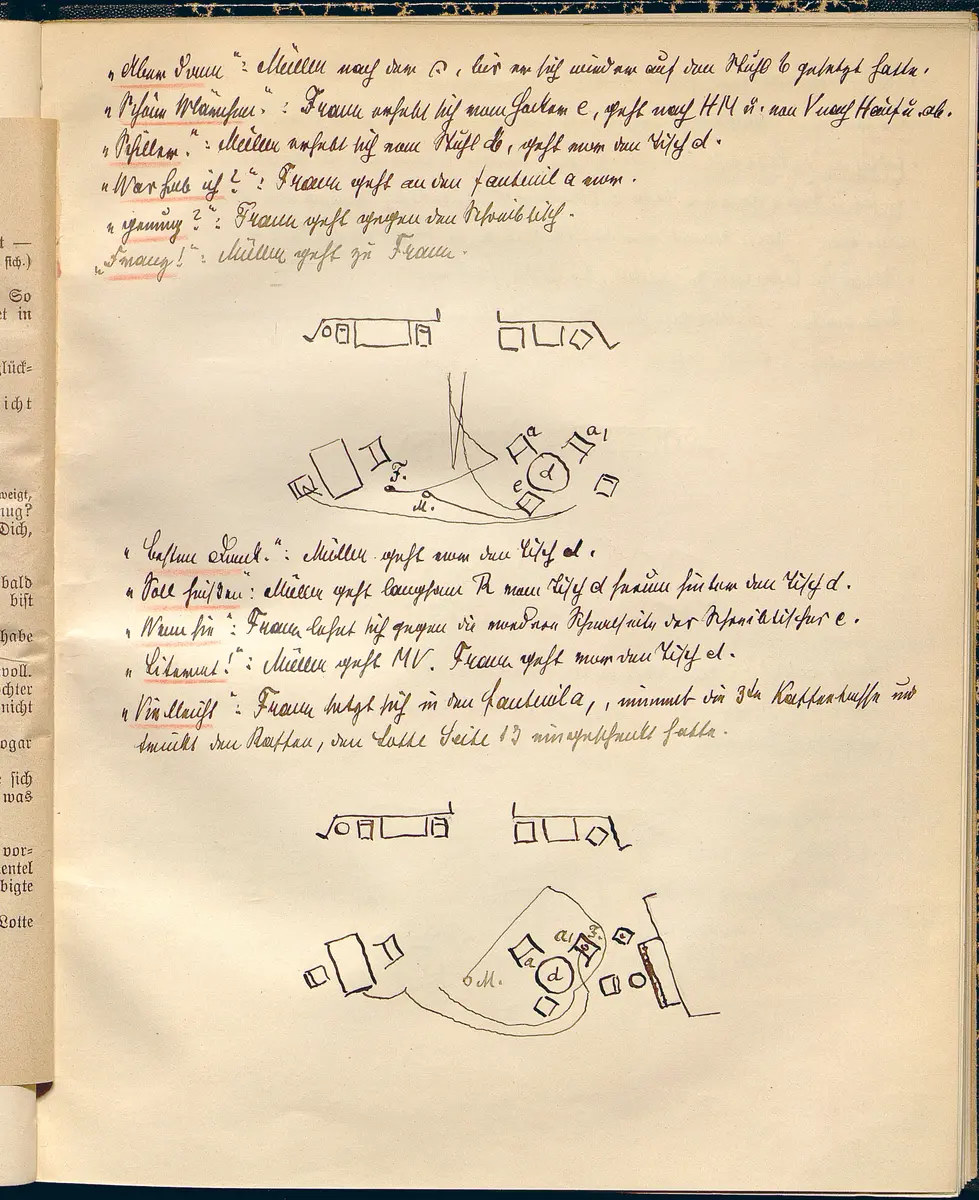 t —
sich.)
So
et in
glück=
icht
weigt,
nug?
Dich,
bald
bist
habe
voll.
chter
nicht
ogar
e sich
was
vor=
entel
bigte
Lotte
„Aber dann“: Müller nach dem, bis er sich wieder auf den Stuhl b gesetzt hatte.
„Schöne Märchen.“: Franz erhebt sich vom Hocker e, geht nach HM u. von V nach H auf u. ab.
„Schiller.“: Müller erhebt sich vom Stuhl b, geht vor den Tisch d.
„Was hab ich?“: Franz geht an den Fauteuil a vor.
„genung?“: Franz geht gegen den Schreibtisch.
„Franz!“: Müller geht zu Franz.
a
a1
d
e
F.
M.
„Besten Dank.“: Müller geht vor den Tisch d.
„Soll heißen“: Müller geht langsam R vom Tisch d herum hinter den Tisch d.
„Wenn sie“: Franz lehnt sich gegen die vordere Schmalseite des Schreibtisches c.
„Literat!“: Müller geht MV. Franz geht vor den Tisch d.
„Vielleicht“: Franz setzt sich in den Fauteuil a, nimmt die 3te Kaffeetasse und
trinkt den Kaffee, den Lotte Seite 13 eingeschenkt hatte.
a1
F.
a
d
M.